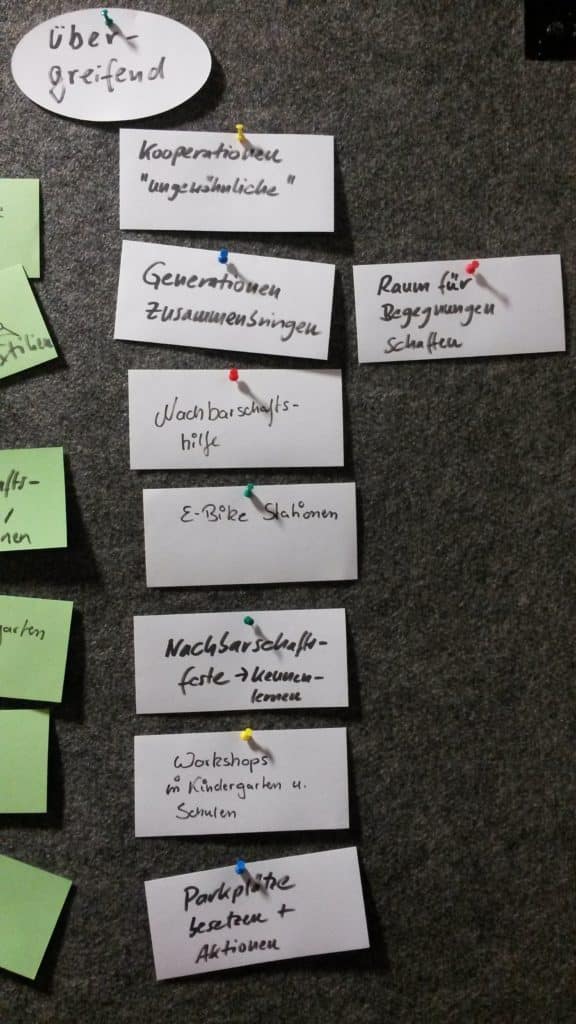 über-
greifend
Kooperationen
"ungewöhnliche"
Generationen
Zusammenbringen
Raum für
Begegnungen
schaffen
Nachbarschafts-
hilfe
E-Bike Stationen
Nachbarschafts-
feste → kennen-
lernen
Workshops
in Kindergarten u.
Schulen
Parkplätze
besetzen +
Aktionen
afts-
nen
garten